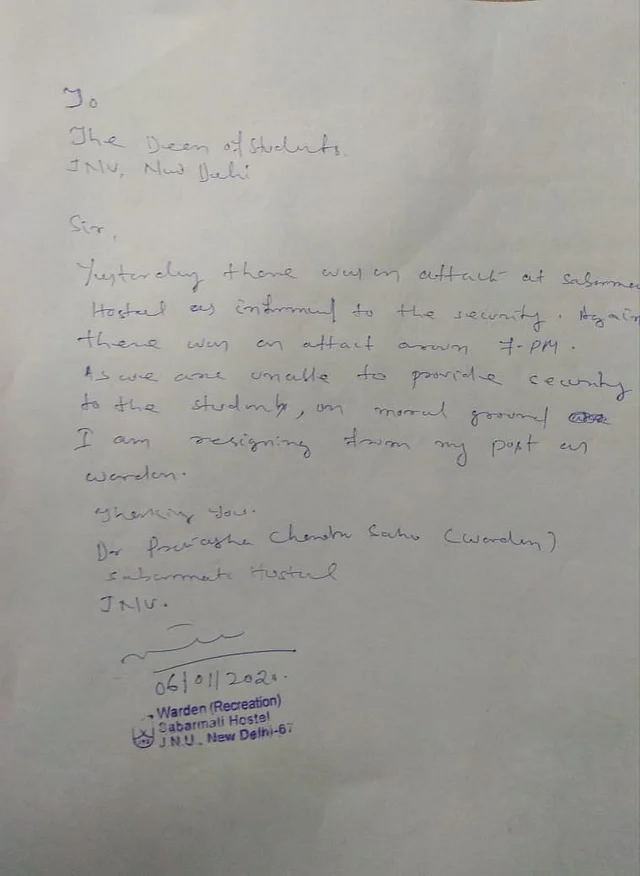 To
The Deen of Students.
JNU, New Delhi
Sir,
Yesterday there was an attack at
Hostel as informed to the security. Again
there was an attact aroun 7-PM.
As we are unable to provide cecurity
to the students, on moral ground
I am resigning from my post as
warden.
Thanking You.
Dr Chandra Sahu (Warden)
Sabarmati Hostel
JNU.
06/01/2020.
Warden (Recreation)
Sabarmati Hostel
J.N.U., New Delhi-67